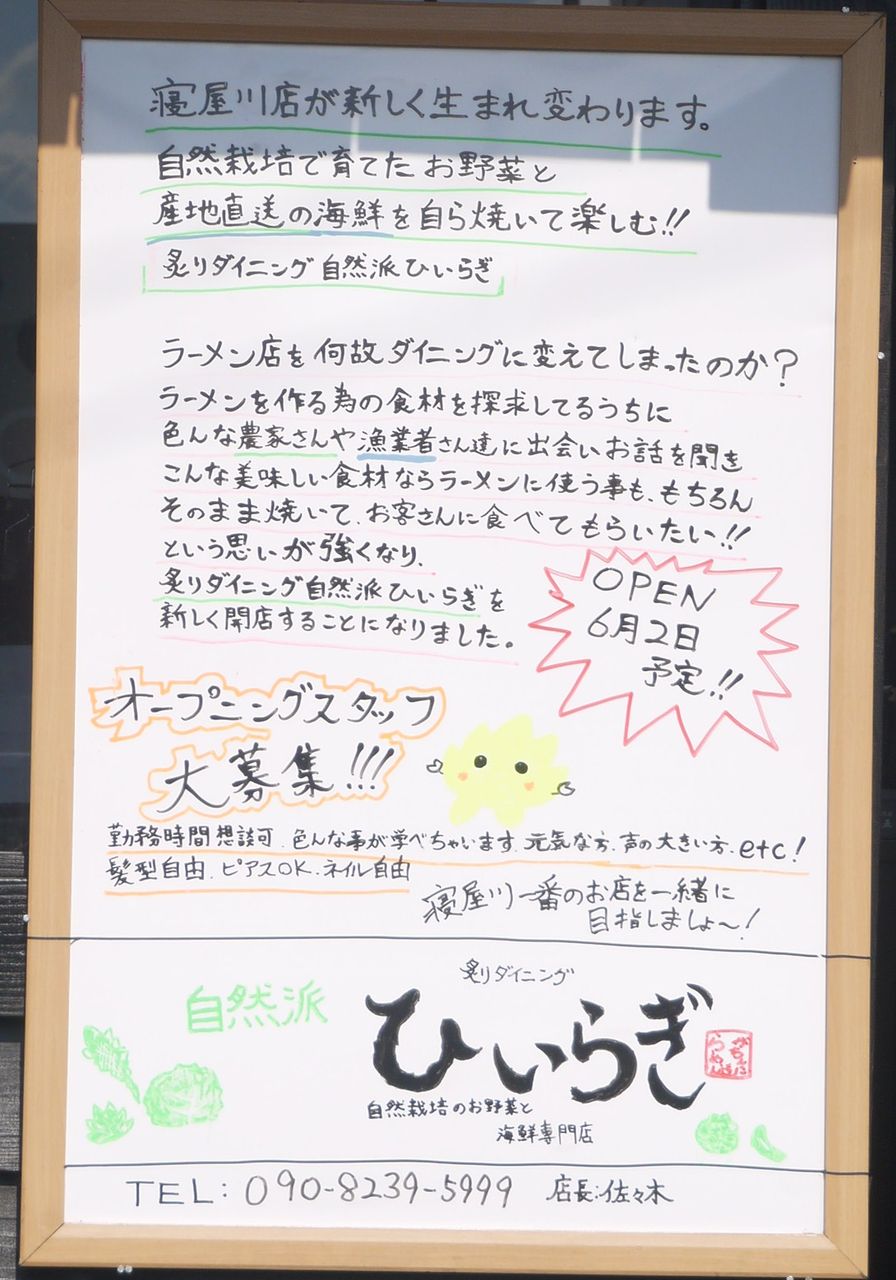 寝屋川店が新しく生まれ変わります。
自然栽培で育てたお野菜と
産地直送の海鮮を自ら焼いて楽しむ!!
炙りダイニング自然派ひいらぎ
ラーメン店を何故ダイニングに変えてしまったのか?
ラーメンを作る為の食材を探求してるうちに
色んな農家さんや漁業者さん達に出会いお話を聞き
こんな美味しい食材ならラーメンに使う事も、もちろん
そのまま焼いて、お客さんに食べてもらいたい!!
という思いが強くなり、
炙りダイニング自然派ひいらぎを
新しく開店することになりました。
OPEN
6月2日
予定!!
オープニングスタッフ
大募集!!!
勤務時間想談可、色んな事が学べちゃいます、元気な方、声の大きい方、etc!
髪型自由、ピアスOK、ネイル自由
寝屋川一番のお店を一緒に
目指しましょ〜!
自然派
炙りダイニング
ひいらぎ
自然栽培のお野菜と
海鮮専門店
TEL:090-8239-5999 店長:佐々木